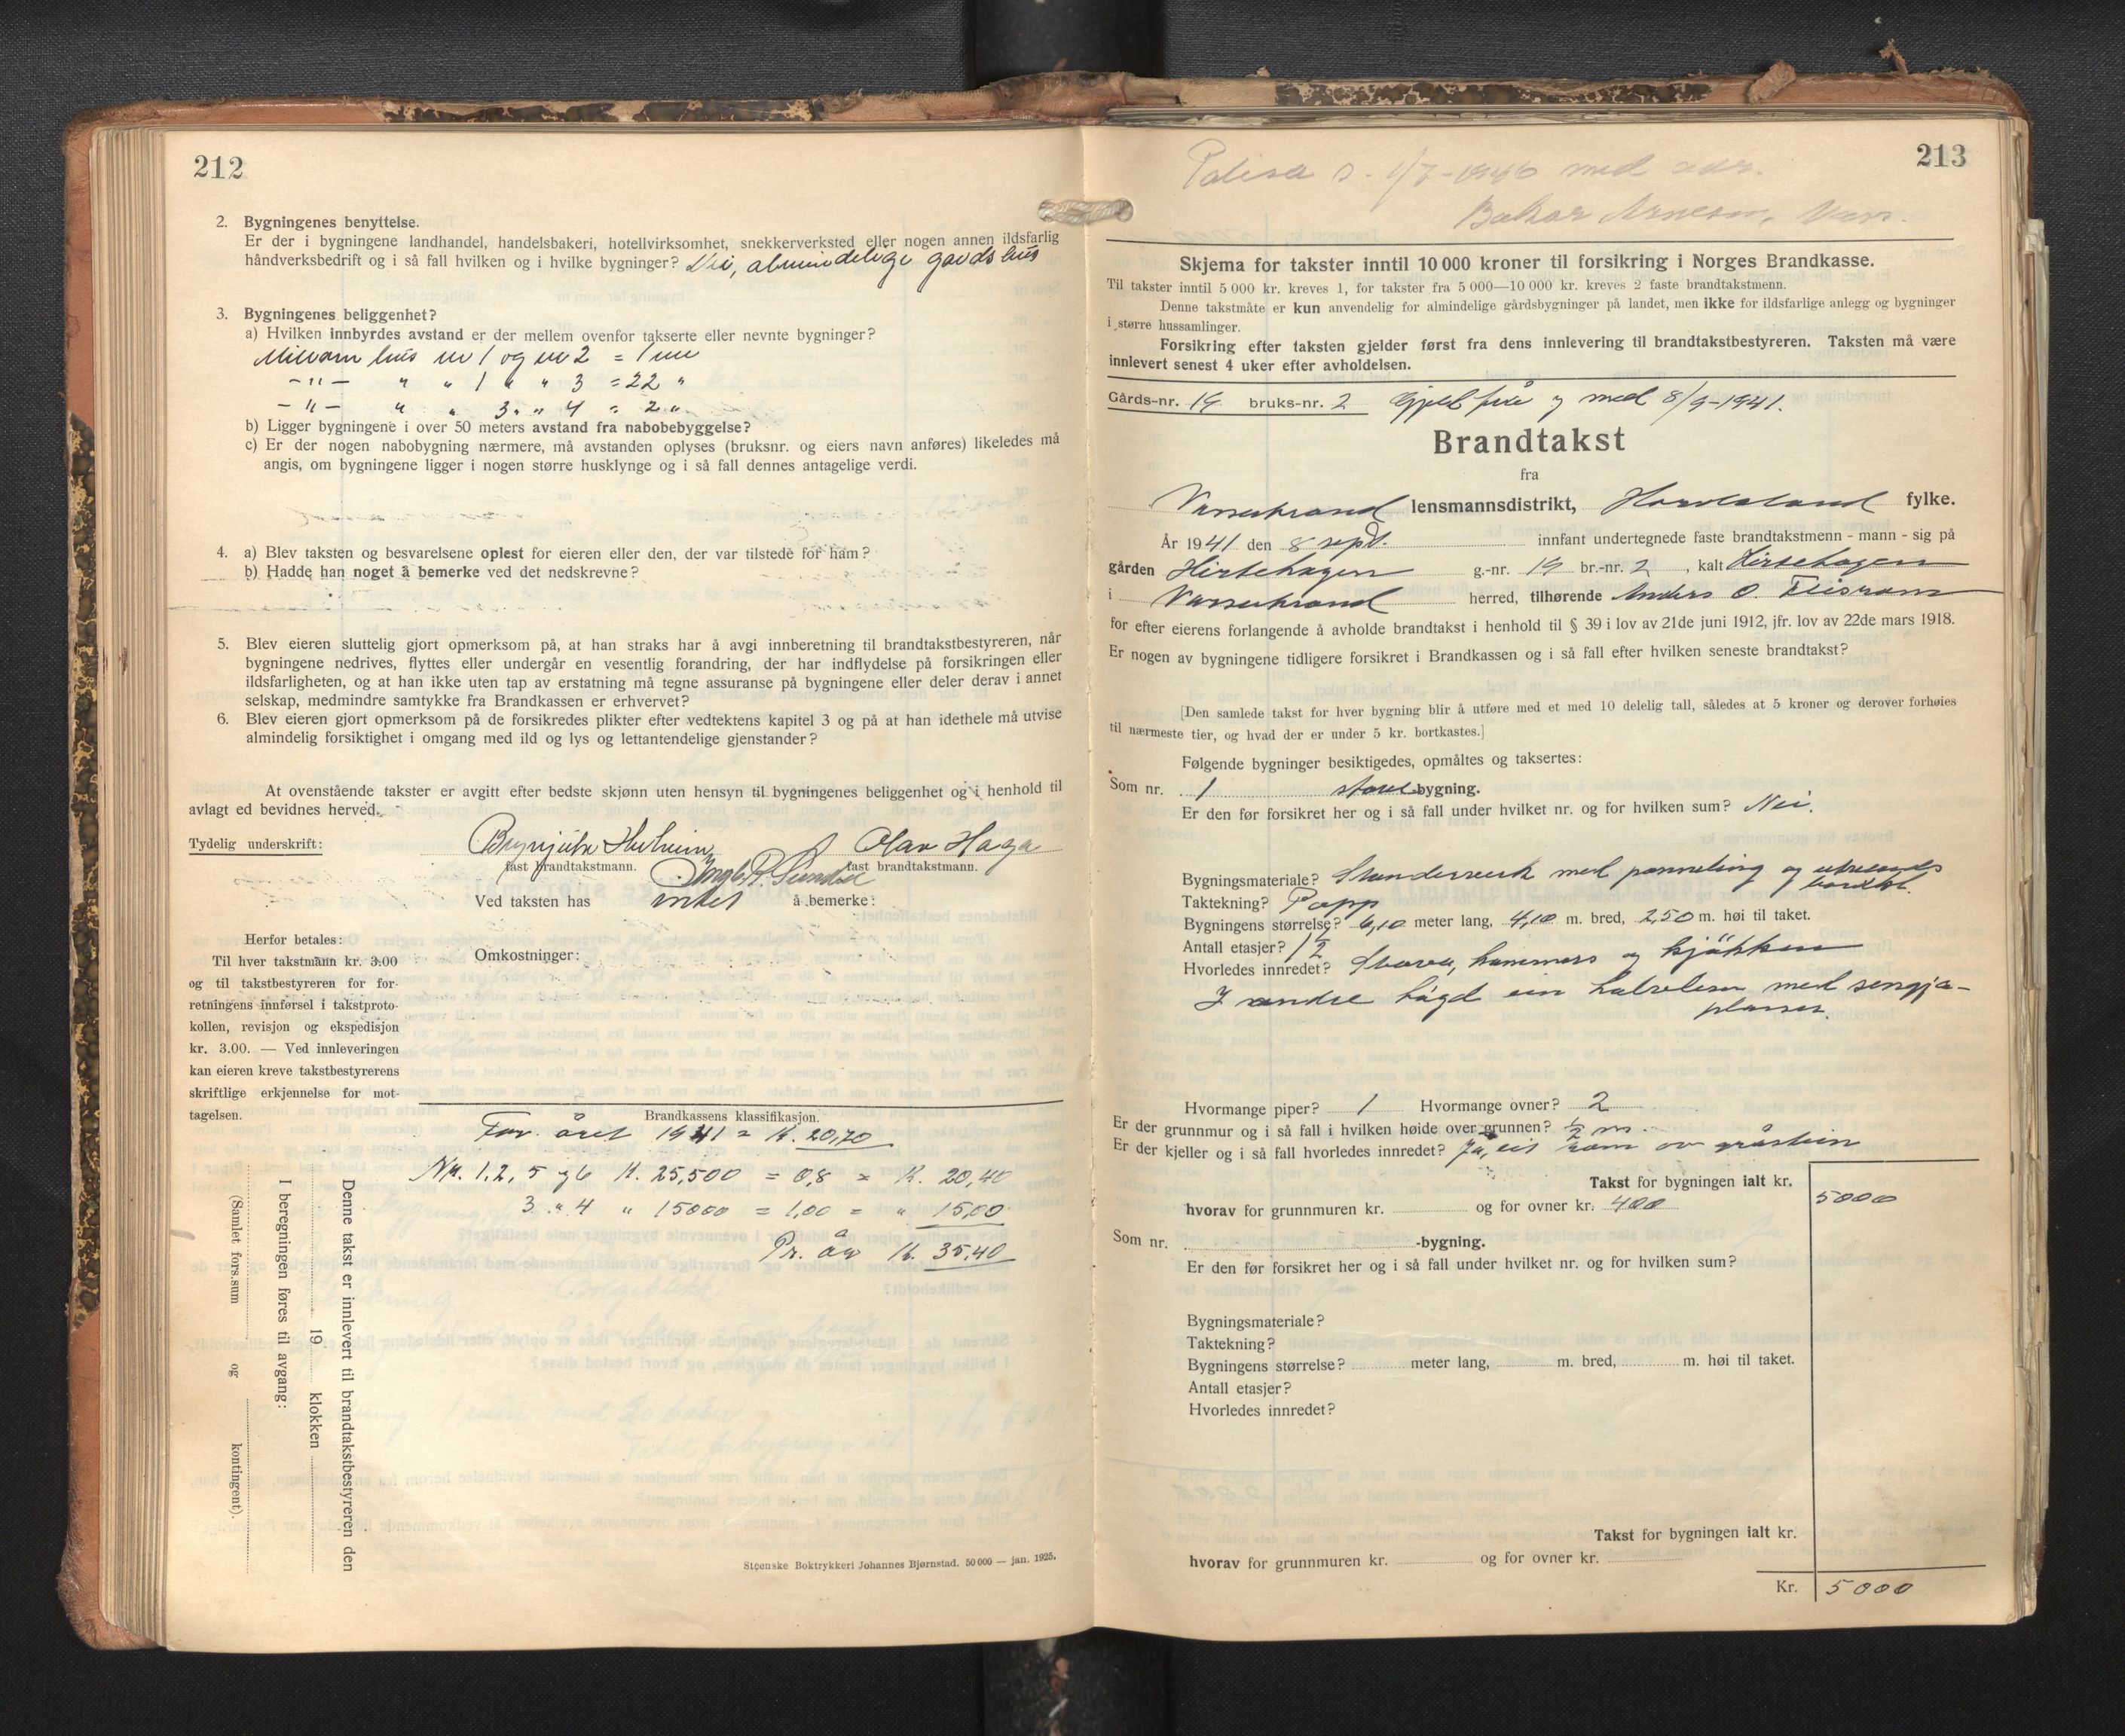 212
2. Bygningenes benyttelse.
Er der i bygningene landhandel, handelsbakeri, hotellvirksomhet, snekkerverksted eller nogen annen ildsfarlig
håndverksbedrift og i så fall hvilken og i hvilke bygninger? Nei, almindelige gardshus
3. Bygningenes beliggenhet?
a) Hvilken innbyrdes avstand er der mellem ovenfor takserte eller nevnte bygninger?
Millom hus nr 1 og nr 2 = 1 m
-"- " " 1 " " 3 = 22 "
-"- " " 3 " " 4 = 2 "
b) Ligger bygningene i over 50 meters avstand fra nabobebyggelse?
c) Er der nogen nabobygning nærmere, må avstanden oplyses (bruksnr. og eiers navn anføres) likeledes må
angis, om bygningene ligger i nogen større husklynge og i så fall dennes antagelige verdi.
4. a) Blev taksten og besvarelsene oplest for eieren eller den, der var tilstede for ham?
b) Hadde han noget å bemerke ved det nedskrevne?
5. Blev eieren sluttelig gjort opmerksom på, at han straks har å avgi innberetning til brandtakstbestyreren, når
bygningene nedrives, flyttes eller undergår en vesentlig forandring, der har indflydelse på forsikringen eller
ildsfarligheten, og at han ikke uten tap av erstatning må tegne assuranse på bygningene eller deler derav i annet
selskap, medmindre samtykke fra Brandkassen er erhvervet?
6. Blev eieren gjort opmerksom på de forsikredes plikter efter vedtektens kapitel 3 og på at han idethele må utvise
almindelig forsiktighet i omgang med ild og lys og lettantendelige gjenstander?
At ovenstående takster er avgitt efter bedste skjønn uten hensyn til bygningenes beliggenhet og i henhold til
avlagt ed bevidnes herved.
Tydelig underskrift: Olav Haga
fast brandtakstmann. fast brandtakstmann.
Ved taksten has intet å bemerke:
Herfor betales:
Til hver takstmann kr. 3.00
og til takstbestyreren for for-
retningens innførsel i takstproto-
kollen, revisjon og ekspedisjon
kr. 3.00. — Ved innleveringen
kan eieren kreve takstbestyrerens
skriftlige erkjennelse for mot-
tagelsen.
Omkostninger:
Brandkassens klassifikasjon.
For året 1941 = K. 20,70
Nr. 1, 2, 5 og 6 K. 25,500 = 0,8 = K. 20,40
3 " 4 " 15000 = 1,00 = " 15,00
Pr. år K. 35,40
Denne takst er innlevert til brandtakstbestyreren den
19 klokken
I beregningen føres til avgang:
(Samlet fors.sum og kontingent).
Steenske Boktrykkeri Johannes Bjørnstad. 50 000 — jan. 1925.
213
Polisa d. 1/7-1946 med
Skjema for takster inntil 10 000 kroner til forsikring i Norges Brandkasse.
Til takster inntil 5 000 kr. kreves 1, for takster fra 5 000—10 000 kr. kreves 2 faste brandtakstmenn.
Denne takstmåte er kun anvendelig for almindelige gårdsbygninger på landet, men ikke for ildsfarlige anlegg og bygninger
i større hussamlinger.
Forsikring efter taksten gjelder først fra dens innlevering til brandtakstbestyreren. Taksten må være
innlevert senest 4 uker efter avholdelsen.
Gårds-nr. 19 bruks-nr. 2 Gjeld frå og med 8/9-1941.
Brandtakst
fra
lensmannsdistrikt, Hordaland fylke.
År 1941 den 8 sept. innfant undertegnede faste brandtakstmenn - mann - sig på
gården Hirtehagen g.-nr. 19 br.-nr. 2, kalt Hirtehagen
i herred, tilhørende Anders O.
for efter eierens forlangende å avholde brandtakst i henhold til § 39 i lov av 21de juni 1912, jfr. lov av 22de mars 1918.
Er nogen av bygningene tidligere forsikret i Brandkassen og i så fall efter hvilken seneste brandtakst?
[Den samlede takst for hver bygning blir å utføre med et med 10 delelig tall, således at 5 kroner og derover forhøies
til nærmeste tier, og hvad der er under 5 kr. bortkastes.]
Følgende bygninger besiktigedes, opmåltes og taksertes:
Som nr. 1 bygning.
Er den før forsikret her og i så fall under hvilket nr. og for hvilken sum? Nei.
Bygningsmateriale? Standerverk med panneling og utvendes
bordkl.
Taktekning? Papp
Bygningens størrelse? 6,10 meter lang, 4,10 m. bred, 2,50 m. høi til taket.
Antall etasjer? 1 1/2
Hvorledes innredet? Stova, kammers og kjøkken
I andre høgd ein med sengja-
plasser.
Hvormange piper? 1 Hvormange ovner? 2
Er der grunnmur og i så fall i hvilken høide over grunnen? 1/2 m.
Er der kjeller og i så fall hvorledes innredet? Ja, eit rom av gråstein
Takst for bygningen ialt kr. 5000
hvorav for grunnmuren kr. og for ovner kr. 400
Som nr. -bygning.
Er den før forsikret her og i så fall under hvilket nr. og for hvilken sum?
Bygningsmateriale?
Taktekning?
Bygningens størrelse? meter lang, m. bred, m. høi til taket.
Antall etasjer?
Hvorledes innredet?
Takst for bygningen ialt kr.
hvorav for grunnmuren kr. og for ovner kr.
Kr. 5000